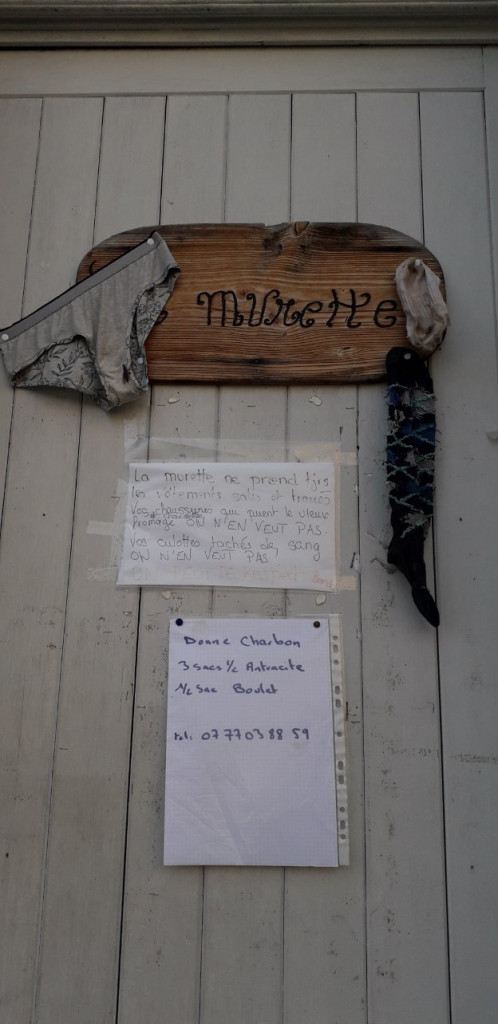 Murette
La murette ne prend tjrs
les vêtements salis et troués
Vos chaussures qui puent le vieux
fromage ON N'EN VEUT PAS.
Vos culottes tachés de sang
ON N'EN VEUT PAS
Donne Charbon
3 sacs 1/2 Antracite
1/2 Sac Boulet
tel: 07 77 03 88 59